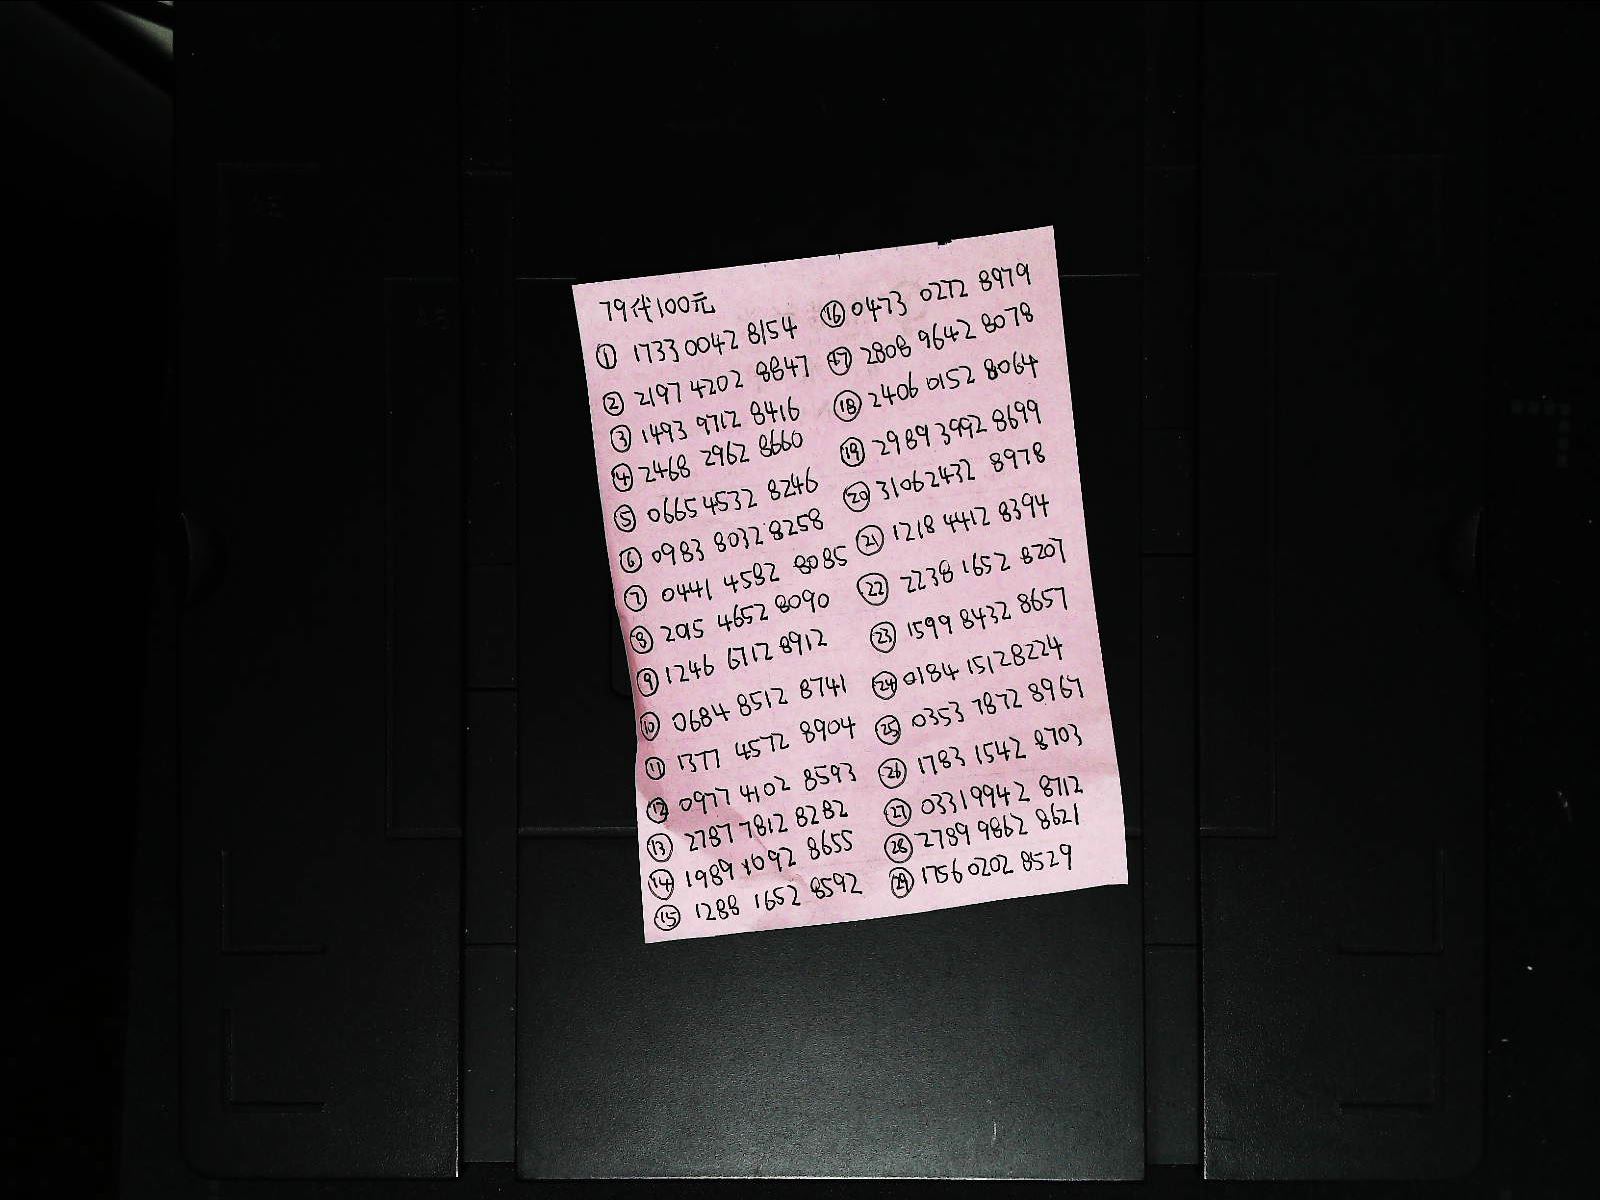 79代100元
① 1733 0042 8154
② 2197 4202 8847
③ 1493 9712 8416
④ 2468 2962 8660
⑤ 0665 4532 8246
⑥ 0983 8032 8258
⑦ 0441 4582 8085
⑧ 2015 4652 8090
⑨ 1246 6712 8912
⑩ 0684 8512 8741
⑪ 1377 4572 8904
⑫ 0977 4102 8593
⑬ 2787 7812 8282
⑭ 1989 1092 8655
⑮ 1288 1652 8592
⑯ 0473 0272 8979
⑰ 2808 9642 8078
⑱ 2406 0152 8064
⑲ 2989 3992 8699
⑳ 3106 2432 8978
㉑ 1218 4412 8394
㉒ 2238 1652 8207
㉓ 1599 8432 8657
㉔ 0184 1512 8224
㉕ 0353 7872 8967
㉖ 1783 1542 8703
㉗ 0331 9942 8712
㉘ 2789 9862 8621
㉙ 1756 0202 8529